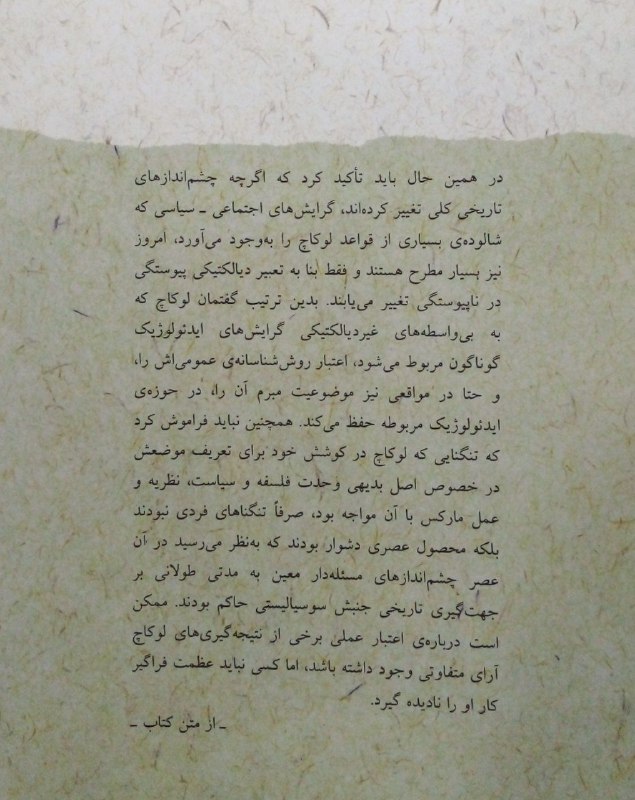 در همین حال باید تأکید کرد که اگرچه چشم‌اندازهای
تاریخی کلی تغییر کرده‌اند، گرایش‌های اجتماعی ـ سیاسی که
شالوده‌ی بسیاری از قواعد لوکاچ را به‌وجود می‌آورد، امروز
نیز بسیار مطرح هستند و فقط بنا به تعبیر دیالکتیکی پیوستگی
در ناپیوستگی تغییر می‌یابند. بدین ترتیب گفتمان لوکاچ که
به بی‌واسطه‌های غیردیالکتیکی گرایش‌های ایدئولوژیک
گوناگون مربوط می‌شود، اعتبار روش‌شناسانه‌ی عمومی‌اش را،
و حتا در مواقعی نیز موضوعیت مبرم آن را، در حوزه‌ی
ایدئولوژیک مربوطه حفظ می‌کند. همچنین نباید فراموش کرد
که تنگنایی که لوکاچ در کوشش خود برای تعریف موضعش
در خصوص اصل بدیهی وحدت فلسفه و سیاست، نظریه و
عمل مارکس با آن مواجه بود، صرفاً تنگناهای فردی نبودند
بلکه محصول عصری دشوار بودند که به‌نظر می‌رسید در آن
عصر چشم‌اندازهای مسئله‌دار معین به مدتی طولانی بر
جهت‌گیری تاریخی جنبش سوسیالیستی حاکم بودند. ممکن
است درباره‌ی اعتبار عملی برخی از نتیجه‌گیری‌های لوکاچ
آرای متفاوتی وجود داشته باشد، اما کسی نباید عظمت فراگیر
کار او را نادیده گیرد.
ـ از متن کتاب ـ